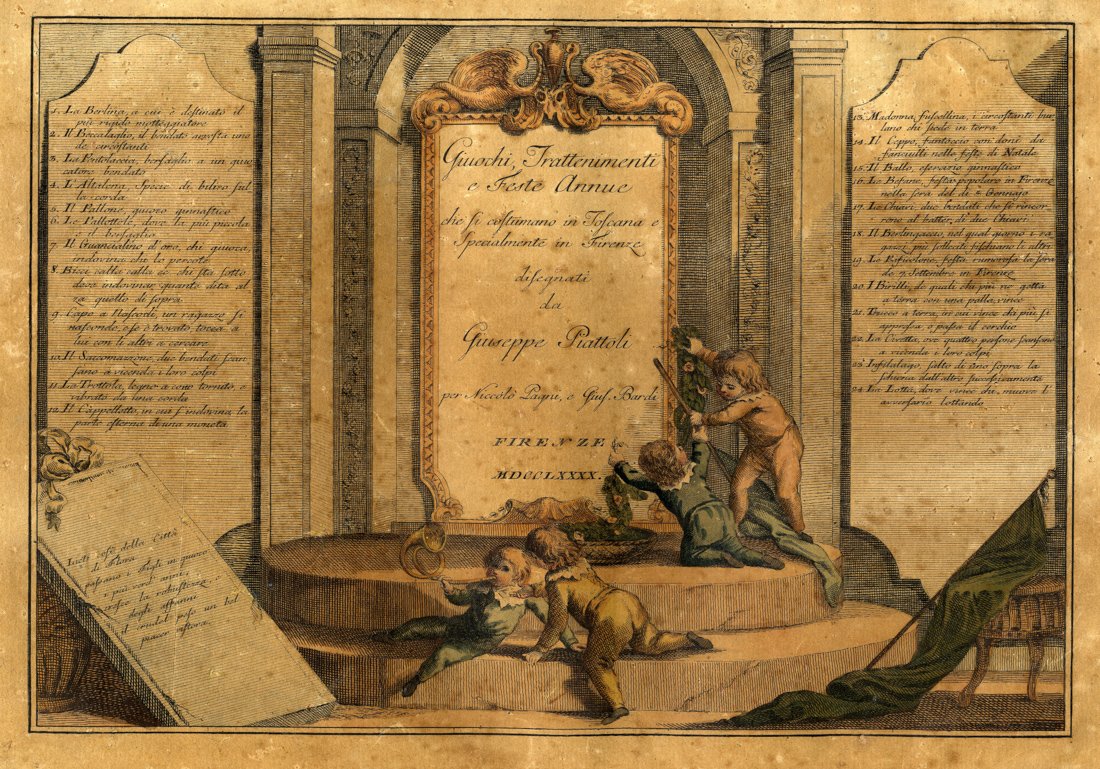 1. La Berlina, a cui è destinato il
più rigido motteggiatore
2. Il Beccalaglio, il bendato aspetta uno
de circostanti
3. La Pentolaccia, bersaglio a un giuo
catore bendato
4. L'Altalena, Specie di bilico sul
la corda
5. Il Pallone, giuoco ginnastico
6. Le Pallottole, dove la più piccola
è il bersaglio
7. Il Guancialino d'oro, chi giuoca,
indovina chi lo percote
8. Bicci calla calla ec chi sta sotto
deve indovinar quante dita al
za quello di sopra
9. Capo a Nascondi, un ragazzo si
nasconde, e se è trovato, tocca a
lui con li altri a cercare
10. Il Saccomazzone, due bendati scan
sano a vicenda i loro colpi
11. La Trottola, legno a cono tornito, e
vibrato da una corda
12. Il Cappelletto, in cui s'indovina la
parte esterna di una moneta
Giuochi, Trattenimenti
e Feste Annue
che si costumano in Toscana e
Specialmente in Firenze
disegnati
da
Giuseppe Piattoli
per Niccolò Pagni, e Gius. Bardi
FIRENZE
MDCCLXXXX.
13. Madonna fuscellina, i circostanti bur
lano chi siede in terra
14. Il Ceppo, fantoccio con doni dei
fanciulli nelle feste di Natale
15. Il Ballo, esercizio ginnastico
16. La Befana, festa popolare in Firenze
nella sera del dì 5 Gennajo
17. Le Chiavi, due bendati che si rincor
rono al batter, di due Chiavi
18. Il Berlingaccio, nel qual giorno i ra
gazzi più solleciti fischiano li altri
19. Le Rificolone, festa rumorosa la sera
de 7. Settembre in Firenze
20. I Birilli, de quali chi più ne getta
a terra con una palla, vince
21. Trucco a terra, in cui vince chi più si
appressa o passa il cerchio
22. La Civetta, ove quattro persone scansano
a vicenda i loro colpi
23 Infilalago, salto di uno sopra la
schiena dall'altro successivamente
24 La Lotta, dove vince chi, muove l'
avversario lottando
della Città
di Flora
passano i in giuoco
i più verdi anni
la robustezza
degli affanni
il crudel peso un bel
piacer